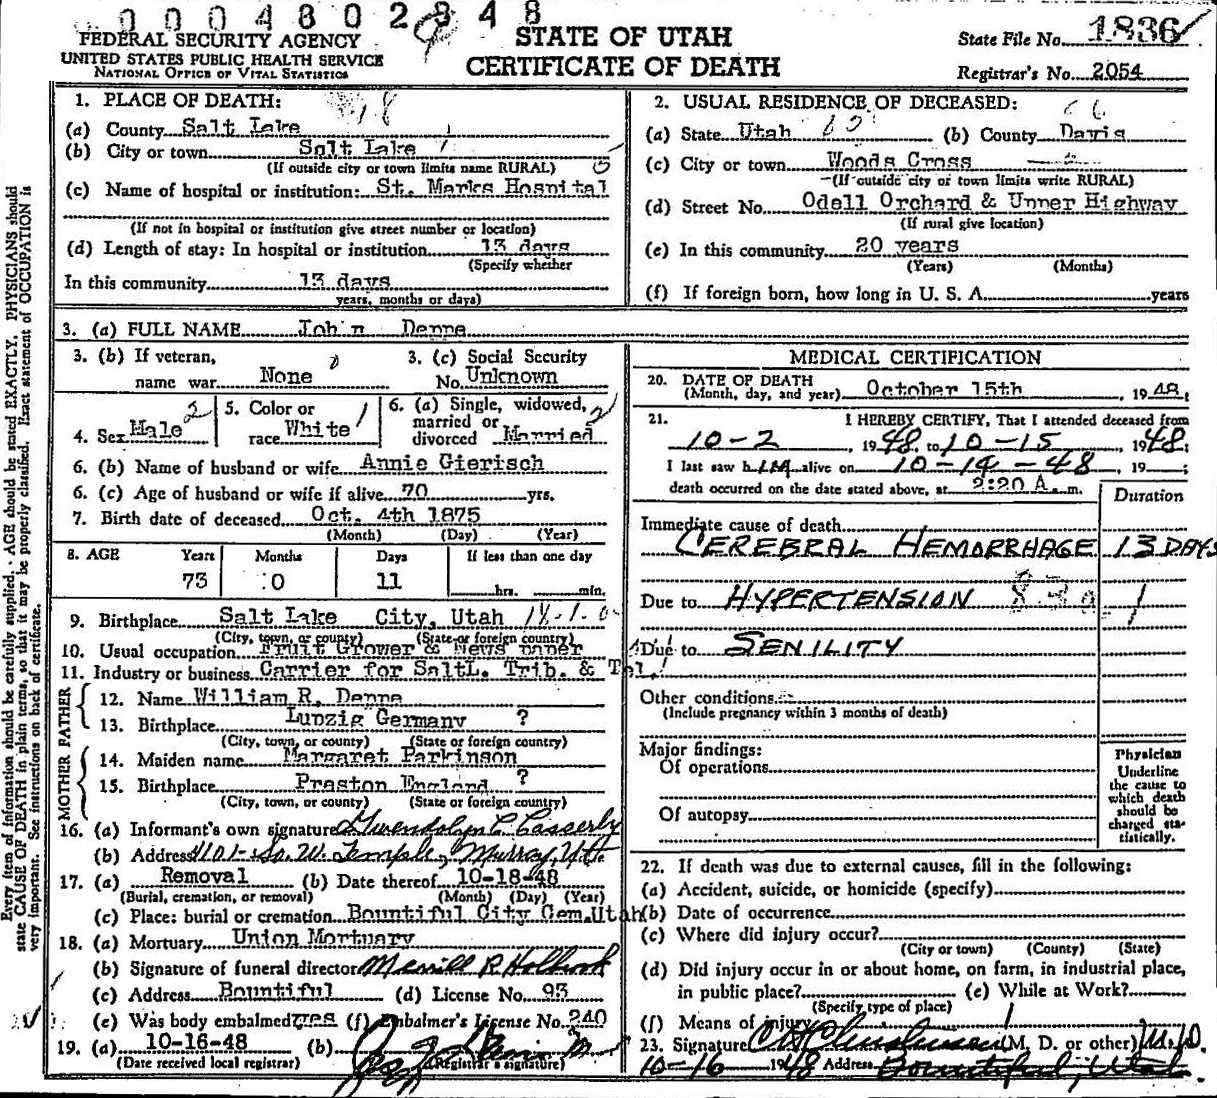 0004802848
FEDERAL SECURITY AGENCY
UNITED STATES PUBLIC HEALTH SERVICE
NATIONAL OFFICE OF VITAL STATISTICS
STATE OF UTAH
CERTIFICATE OF DEATH
State File No. 1836
Registrar's No. 2054
1. PLACE OF DEATH:
(a) County Salt Lake
(b) City or town Salt Lake
(If outside city or town limits name RURAL)
(c) Name of hospital or institution: St. Marks Hospital
(If not in hospital or institution give street number or location)
(d) Length of stay: In hospital or institution 13 days
(Specify whether
In this community 13 days
years, months or days)
2. USUAL RESIDENCE OF DECEASED:
(a) State Utah (b) County Davis
(c) City or town Woods Cross
(If outside city or town limits write RURAL)
(d) Street No. Odell Orchard & Upper Highway
(If rural give location)
(e) In this community 20 years
(Years) (Months)
(f) If foreign born, how long in U. S. A. years
3. (a) FULL NAME John Deppe
3. (b) If veteran,
name war None
3. (c) Social Security
No. Unknown
4. Sex Male
5. Color or
race White
6. (a) Single, widowed,
married or
divorced Married
6. (b) Name of husband or wife Annie Gierisch
6. (c) Age of husband or wife if alive 70 yrs.
7. Birth date of deceased Oct. 4th 1875
(Month) (Day) (Year)
8. AGE Years Months Days If less than one day
73 0 11 hrs. min.
9. Birthplace Salt Lake City, Utah
(City, town, or county) (State or foreign country)
10. Usual occupation Fruit Grower & News paper
11. Industry or business Carrier for SaltL. Trib. & Tel.
FATHER
12. Name William R. Deppe
13. Birthplace Lupzig Germany ?
(City, town, or county) (State or foreign country)
MOTHER
14. Maiden name Margaret Parkinson
15. Birthplace Preston England ?
(City, town, or county) (State or foreign country)
16. (a) Informant's own signature Gwendolyn C Casserly
(b) Address 4101 So. W. Temple, Murray, Ut.
17. (a) Removal (b) Date thereof 10-18-48
(Burial, cremation, or removal) (Month) (Day) (Year)
(c) Place: burial or cremation Bountiful City Cem. Utah
18. (a) Mortuary Union Mortuary
(b) Signature of funeral director Merrill R Holbrook
(c) Address Bountiful (d) License No. 93
(e) Was body embalmed yes (f) Embalmer's License No. 240
19. (a) 10-16-48 (b)
(Date received local registrar) (Registrar's signature)
MEDICAL CERTIFICATION
20. DATE OF DEATH
(Month, day, and year) October 15th, 1948
21. I HEREBY CERTIFY, That I attended deceased from
10-2 1948, to 10-15 1948;
I last saw him alive on 10-14-48, 19 ;
death occurred on the date stated above, at 2:20 A. m.
Duration
Immediate cause of death
CEREBRAL HEMORRHAGE 13 DAYS
Due to HYPERTENSION
Due to SENILITY
Other conditions
(Include pregnancy within 3 months of death)
Major findings:
Of operations
Of autopsy
Physician
Underline
the cause to
which death
should be
charged sta-
tistically.
22. If death was due to external causes, fill in the following:
(a) Accident, suicide, or homicide (specify)
(b) Date of occurrence
(c) Where did injury occur?
(City or town) (County) (State)
(d) Did injury occur in or about home, on farm, in industrial place,
in public place? (e) While at Work?
(Specify type of place)
(f) Means of injury
23. Signature (M. D. or other) M.D.
10-16 1948 Address Bountiful, Utah
Every item of information should be carefully supplied. AGE should be stated EXACTLY. PHYSICIANS should
state CAUSE OF DEATH in plain terms, so that it may be properly classified. Exact statement of OCCUPATION is
very important. See instructions on back of certificate.